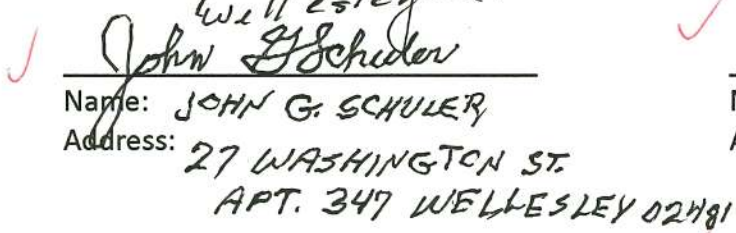 Wellesley
John G Schuler
Name: JOHN G. SCHULER
Address: 27 WASHINGTON ST.
APT. 347 WELLESLEY 02481